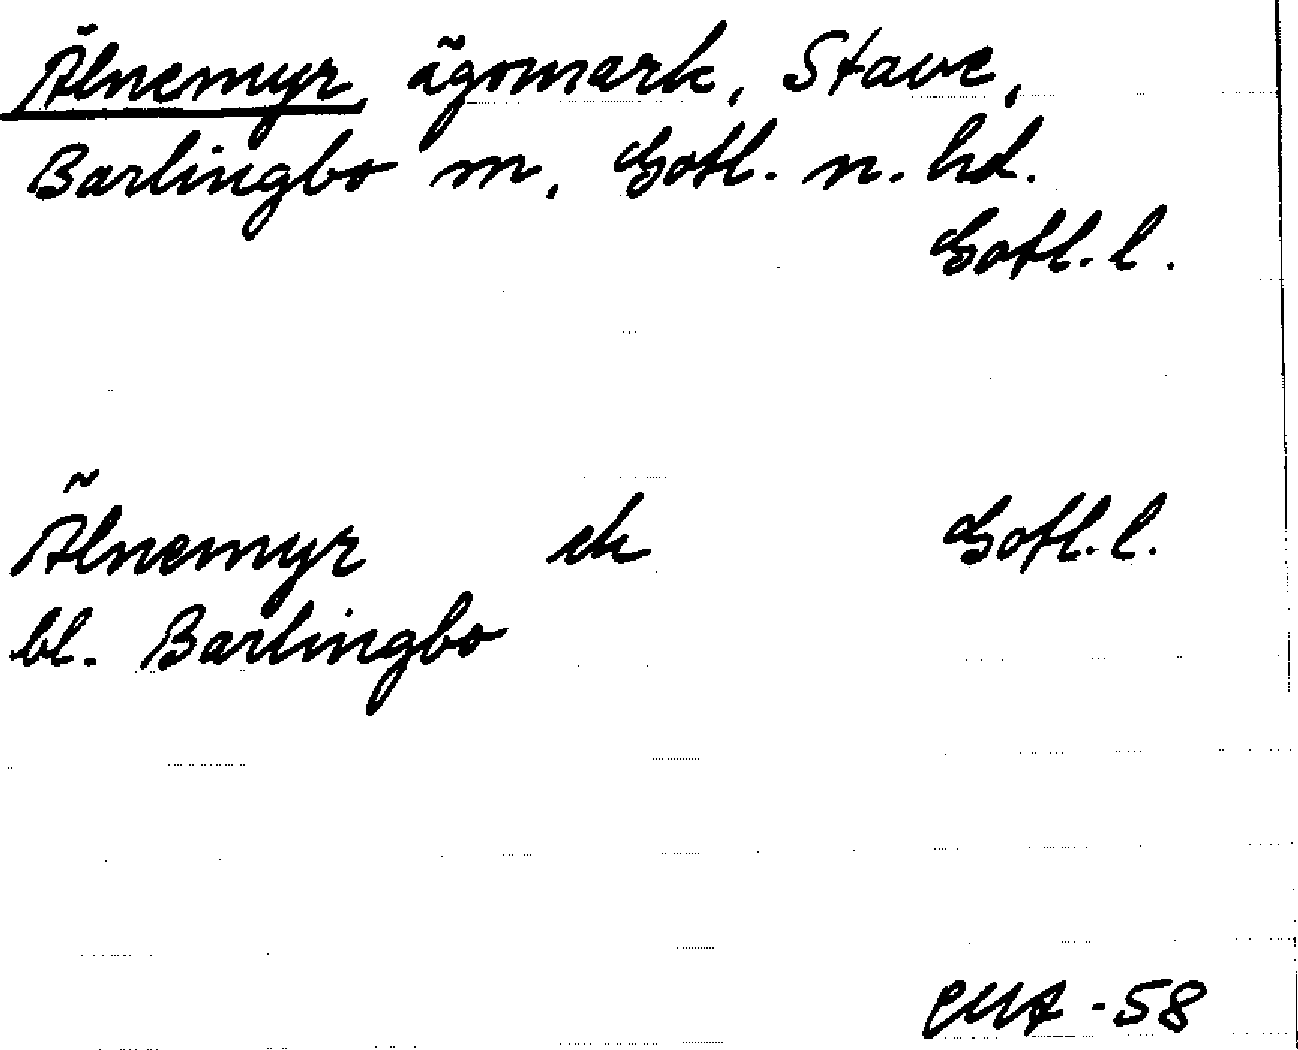 Älnemyr, ägomark, Stave,
Barlingbo m, Gotl. n. hd.
Gotl. l.
Älnemyr ek Gotl. l.
bl. Barlingbo
-58